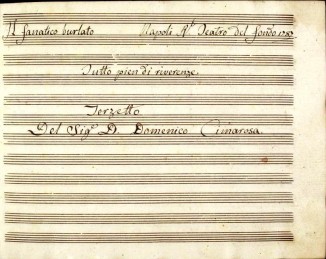 Il fanatico burlato Napoli Rl. Teatro del fondo 1787
Tutto pien di riverenze
Terzetto
Del Sigr. D. Domenico Cimarosa